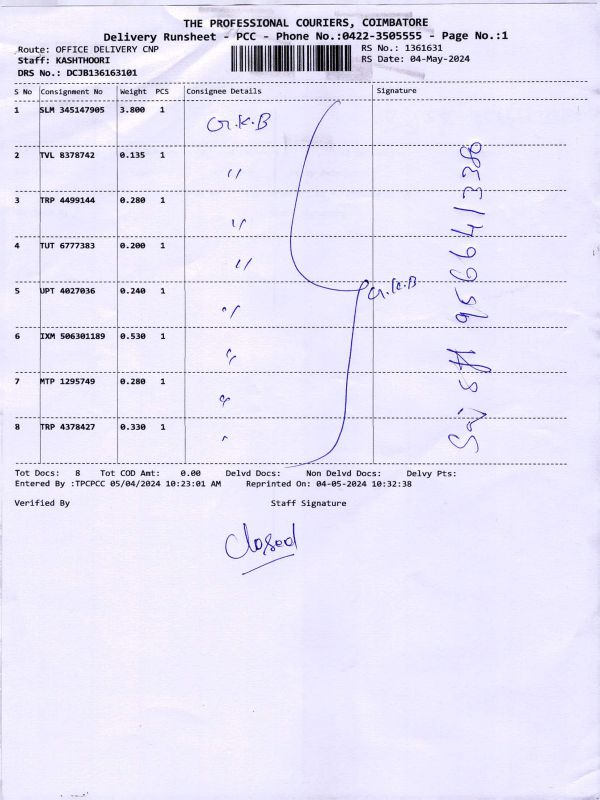 THE PROFESSIONAL COURIERS, COIMBATORE
Delivery Runsheet - PCC - Phone No.:0422-3505555 - Page No.:1
Route: OFFICE DELIVERY CNP
RS No.: 1361631
Staff: KASHTHOORI
RS Date: 04-May-2024
DRS No.: DCJB136163101
S No Consignment No Weight PCS Consignee Details Signature
1 SLM 345147905 3.800 1 G.K.B
2 TVL 8378742 0.135 1 "
3 TRP 4499144 0.280 1 "
4 TUT 6777383 0.200 1 "
5 UPT 4027036 0.240 1 " G.K.B
6 IXM 506301189 0.530 1 "
7 MTP 1295749 0.280 1 "
8 TRP 4378427 0.330 1 "
9566413380
Tot Docs: 8 Tot COD Amt: 0.00 Delvd Docs: Non Delvd Docs: Delvy Pts:
Entered By :TPCPCC 05/04/2024 10:23:01 AM Reprinted On: 04-05-2024 10:32:38
Verified By Staff Signature
Closed